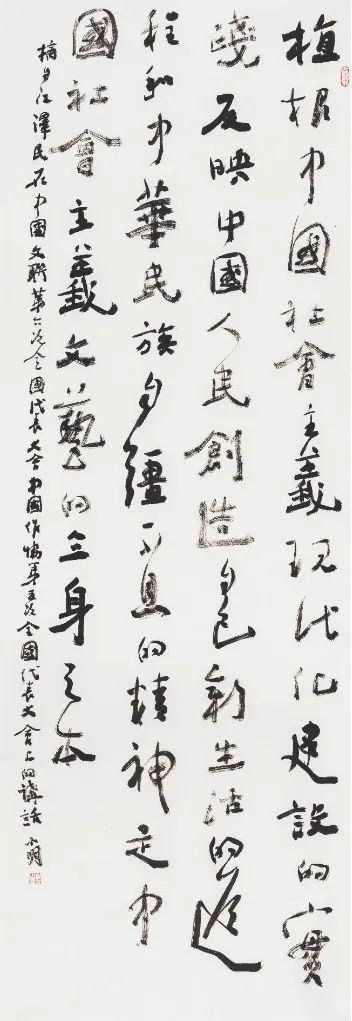 植根中國社會主義現代化建設的實
踐反映中國人民創造自己新生活的進
程和中華民族自彊不息的精神是中
國社會主義文藝的立身之本
摘自江澤民在中國文聯第六次全國代表大会中國作協第五次全國代表大會上的講話